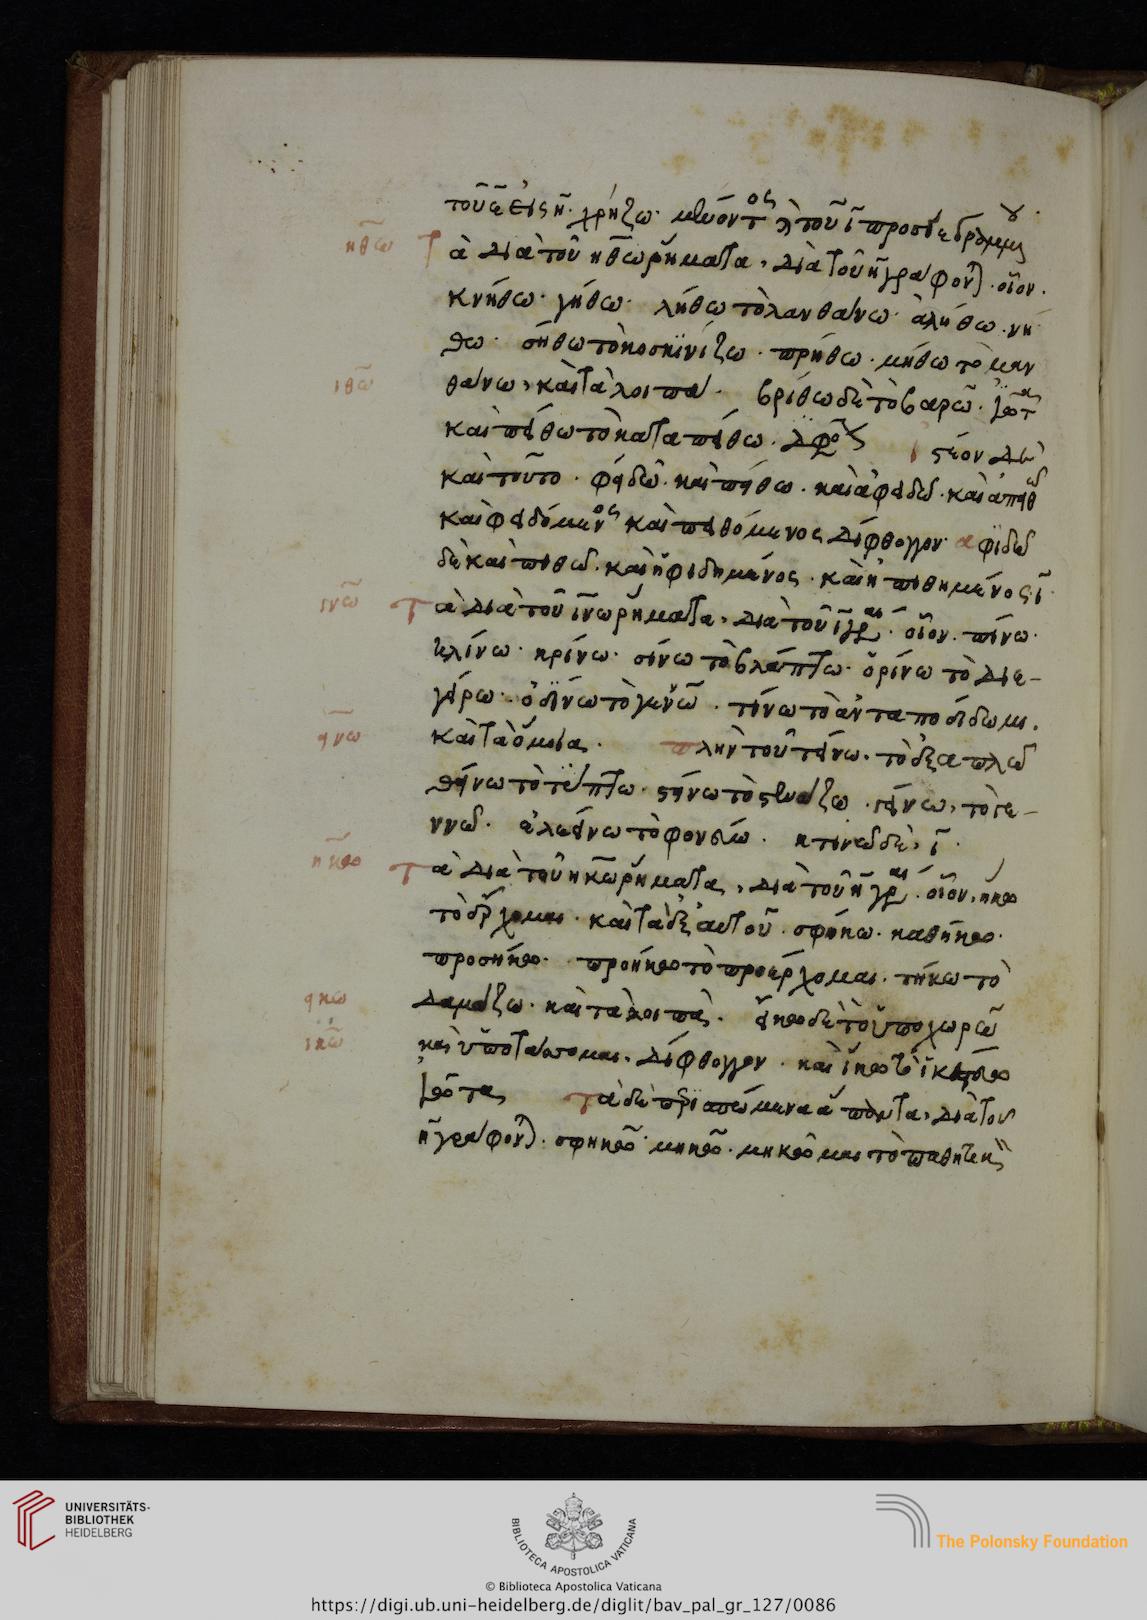 τοῦ ε εἰς η. χρήζω. μένοντος καὶ τοῦ ι προσγεγραμμένου.
ηθω Τὰ διὰ τοῦ ηθω ῥήματα, διὰ τοῦ η γράφονται. οἷον.
κνήθω. γήθω. λήθω τὸ λανθάνω. ἀλήθω. νή
θω. σήθω τὸ κοσκινίζω. πρήθω. μήθω τὸ μαν
ιθω θάνω, καὶ τὰ λοιπά. βρίθω δὲ τὸ βαρῶ. ἰῶτα
καὶ πείθω τὸ καταπείθω. δίφθογγος ἰστέον δὲ
καὶ τοῦτο. φείδω. καὶ πείθω. καὶ ἀφειδῶ. καὶ ἀπειθῶ
καὶ φειδόμενος καὶ πειθόμενος δίφθογγον. ἀφιδῶ
δὲ καὶ πιθῶ. καὶ ἠφιδημένος. καὶ ἠπιθημένος, ι.
ινω Τὰ διὰ τοῦ ινω ῥήματα, διὰ τοῦ ι γράφεται. οἷον. πίνω.
κλίνω. κρίνω. σίνω τὸ βλάπτω. ὀρίνω τὸ διε-
γείρω. ὀδίνω τὸ γεννῶ. τίνω τὸ ἀνταποδίδωμι.
εινω καὶ τὰ ὅμοια. πλὴν τοῦ τείνω. τὸ ἐξαπλῶ
θείνω τὸ τύπτω. στείνω τὸ στενάζω. γείνω, τὸ γε-
ννῶ. τὸ φονεύω. κτινῶ δὲ, ι.
ηκω Τὰ διὰ τοῦ ηκω ῥήματα, διὰ τοῦ η γράφεται. οἷον, ἥκω
τὸ ἔρχομαι. καὶ τὰ ἐξ αὐτοῦ. σφήκω. καθήκω.
προσήκω. προήκω τὸ προέρχομαι. τήκω τὸ
εικω δαμάζω. καὶ τὰ λοιπά. εἴκω δὲ τὸ ὑποχωρῶ
ικω καὶ ὑποτάσσομαι, δίφθογγον. καὶ ἵκω
ἰῶτα. Τὰ δὲ περισπώμενα ἅπαντα, διὰ τοῦ
η γράφονται. σφηκῶ. μηκῶ. μηκῶμαι τὸ παθητικόν
UNIVERSITÄTS-
BIBLIOTHEK
HEIDELBERG
BIBLIOTECA APOSTOLICA VATICANA
The Polonsky Foundation
© Biblioteca Apostolica Vaticana
https://digi.ub.uni-heidelberg.de/diglit/bav_pal_gr_127/0086